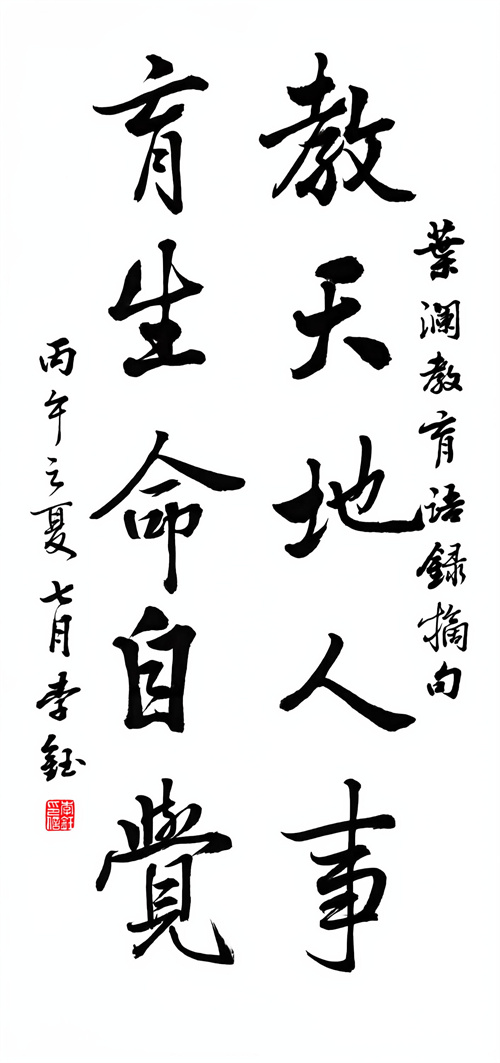 葉澜教育语録摘句
教天地人事
育生命自覺
丙午之夏七月李鈺